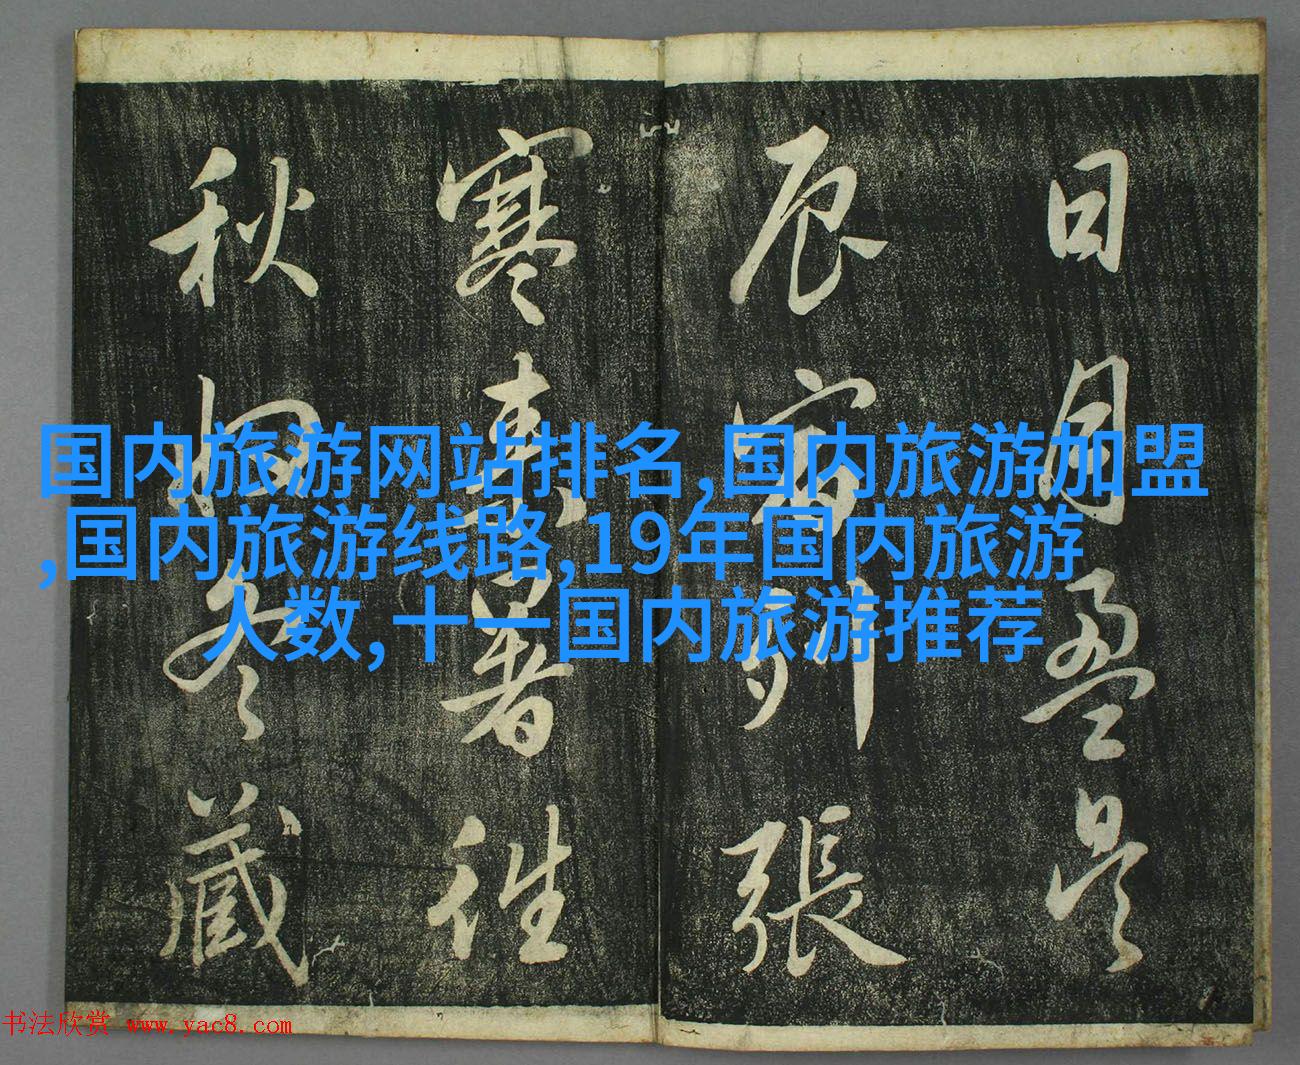 日月盈昃
辰宿列張
寒来暑往
秋收冬藏
国内旅游网站排名,国内旅游加盟
,国内旅游线路,19年国内旅游
人数,十一国内旅游推荐
书法欣赏 www.yac8.com